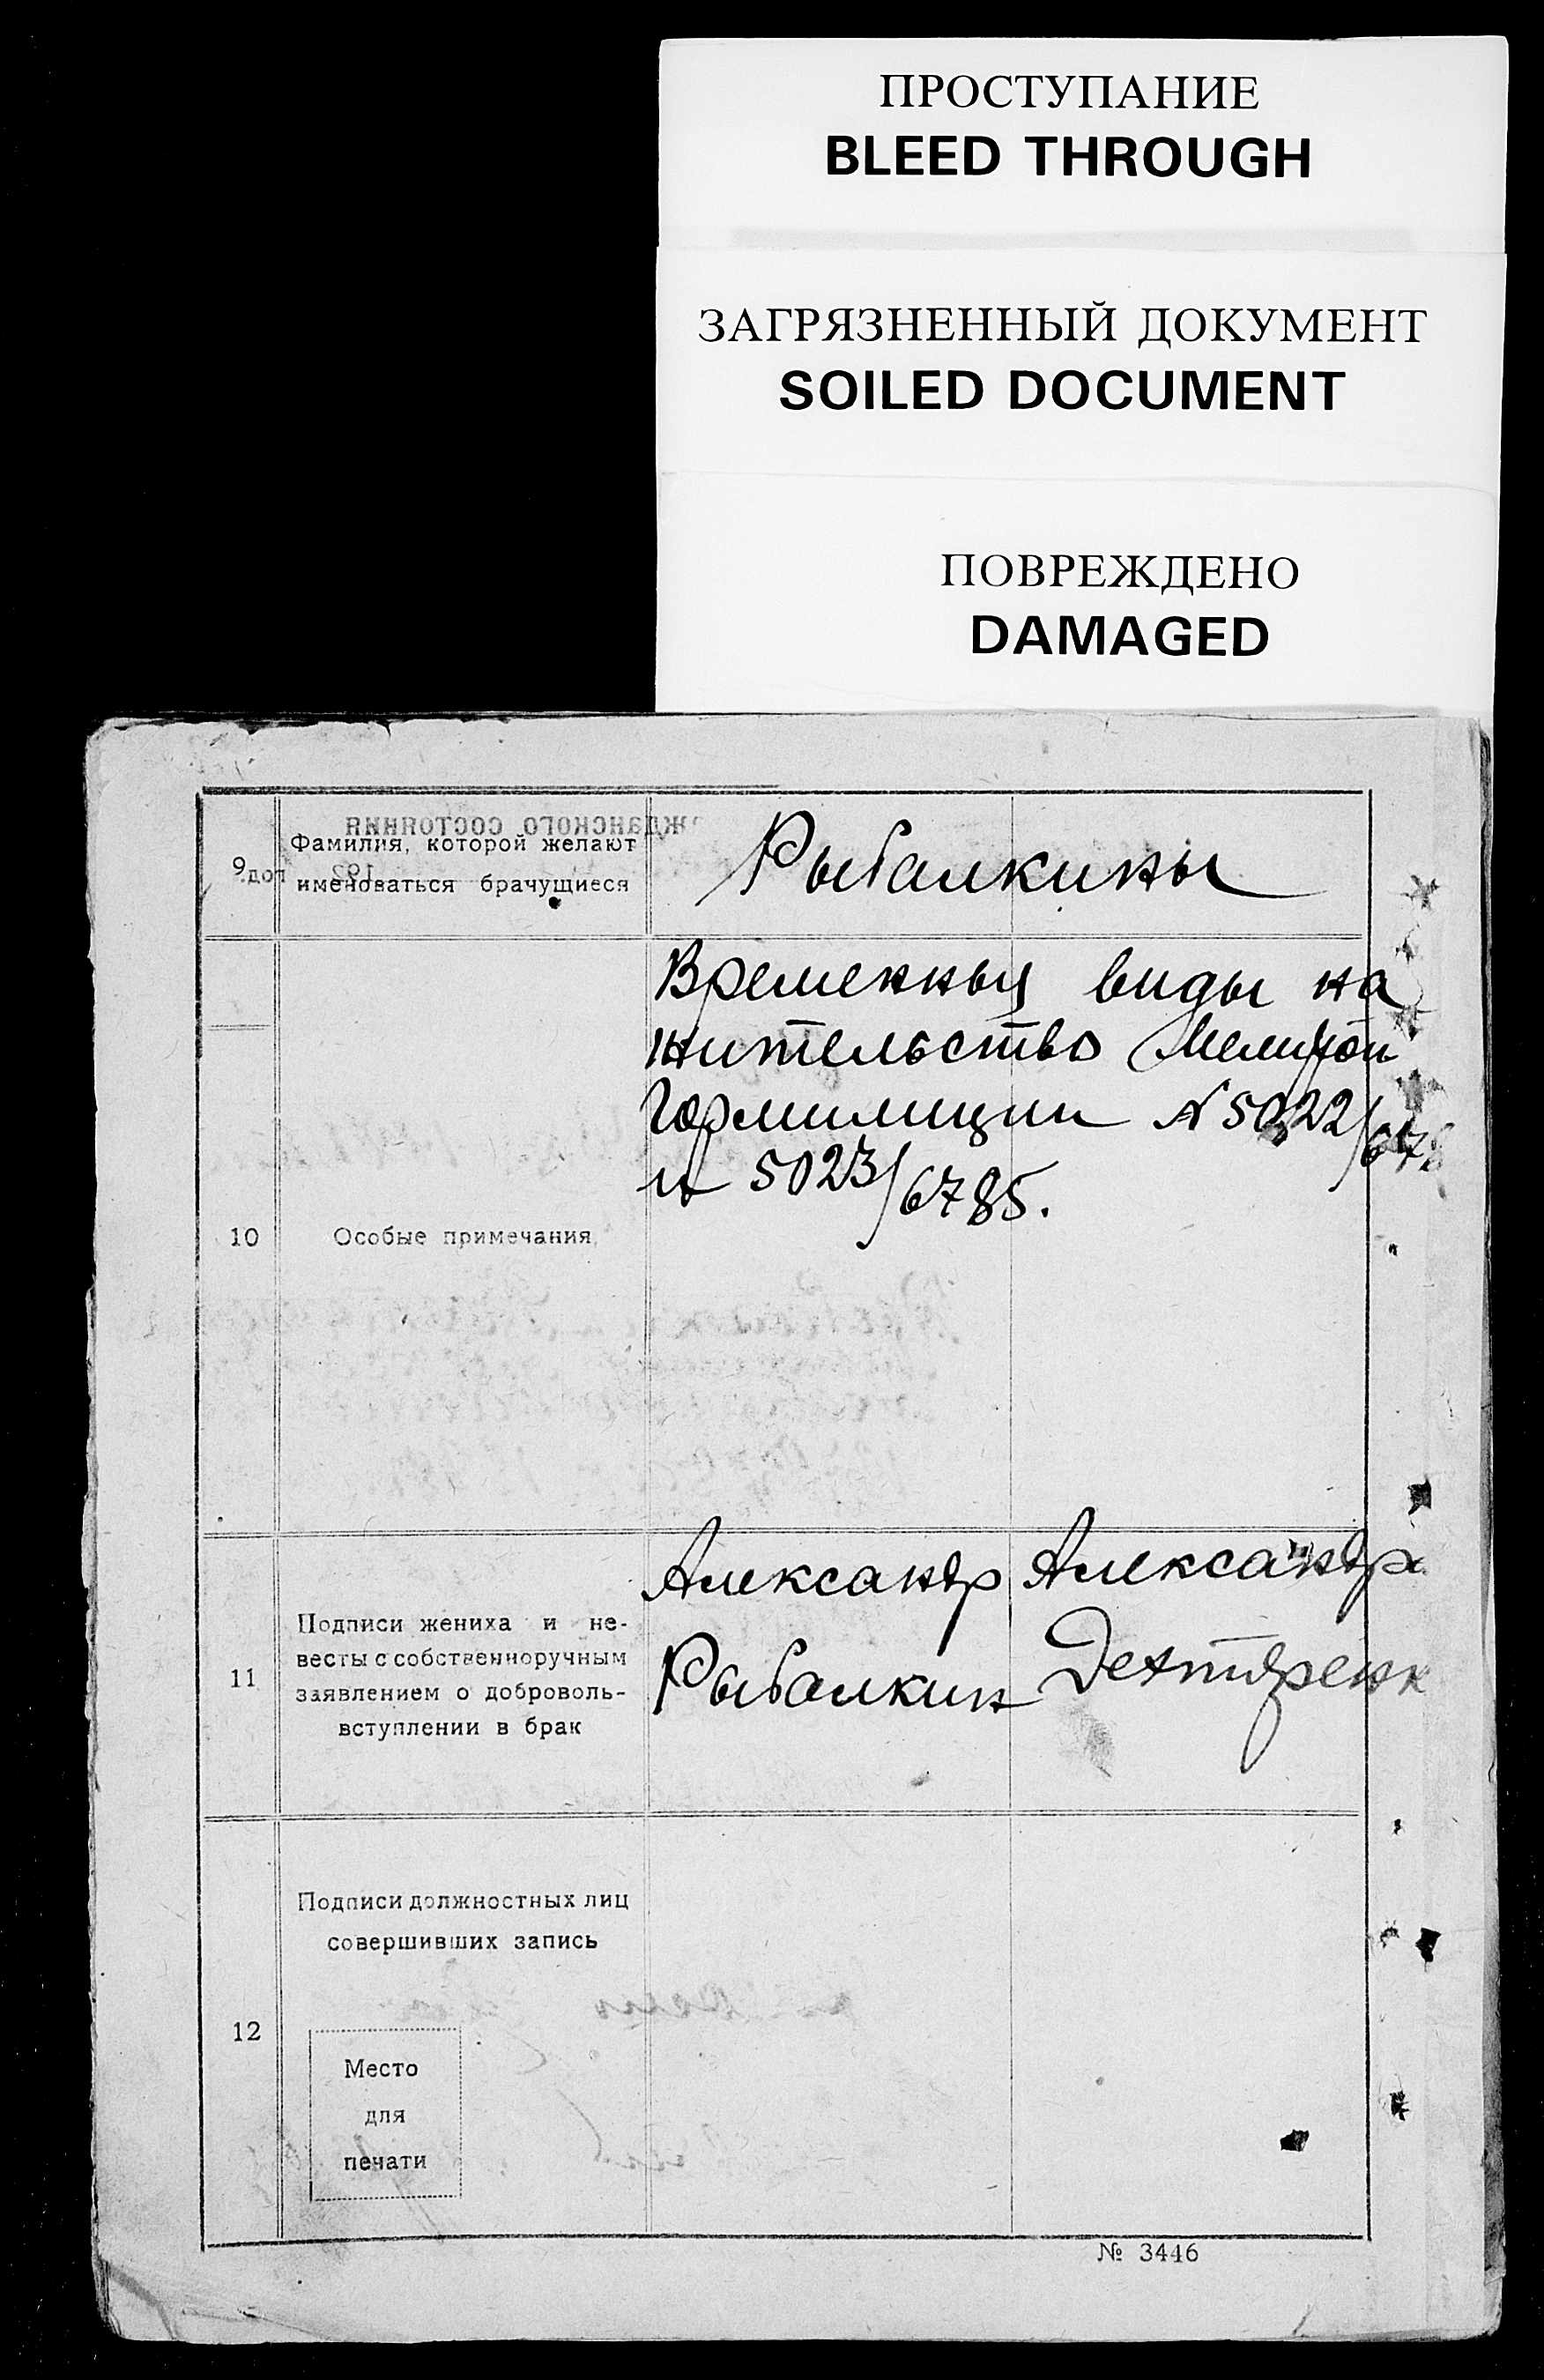 ПРОСТУПАНИЕ
BLEED THROUGH
ЗАГРЯЗНЕННЫЙ ДОКУМЕНТ
SOILED DOCUMENT
ПОВРЕЖДЕНО
DAMAGED
9
Фамилия, которой желают
именоваться брачущиеся
Рыбалкины
10
Особые примечания
Временныя виды на
жительство Мелитоп
Гормилиции № 5022/678
и 5023/6785.
11
Подписи жениха и не-
весты с собственноручным
заявлением о доброволь-
вступлении в брак
Александр
Рыбалкин
Александра
Дехтяренк
12
Подписи должностных лиц
совершивших запись
Место
для
печати
№ 3446